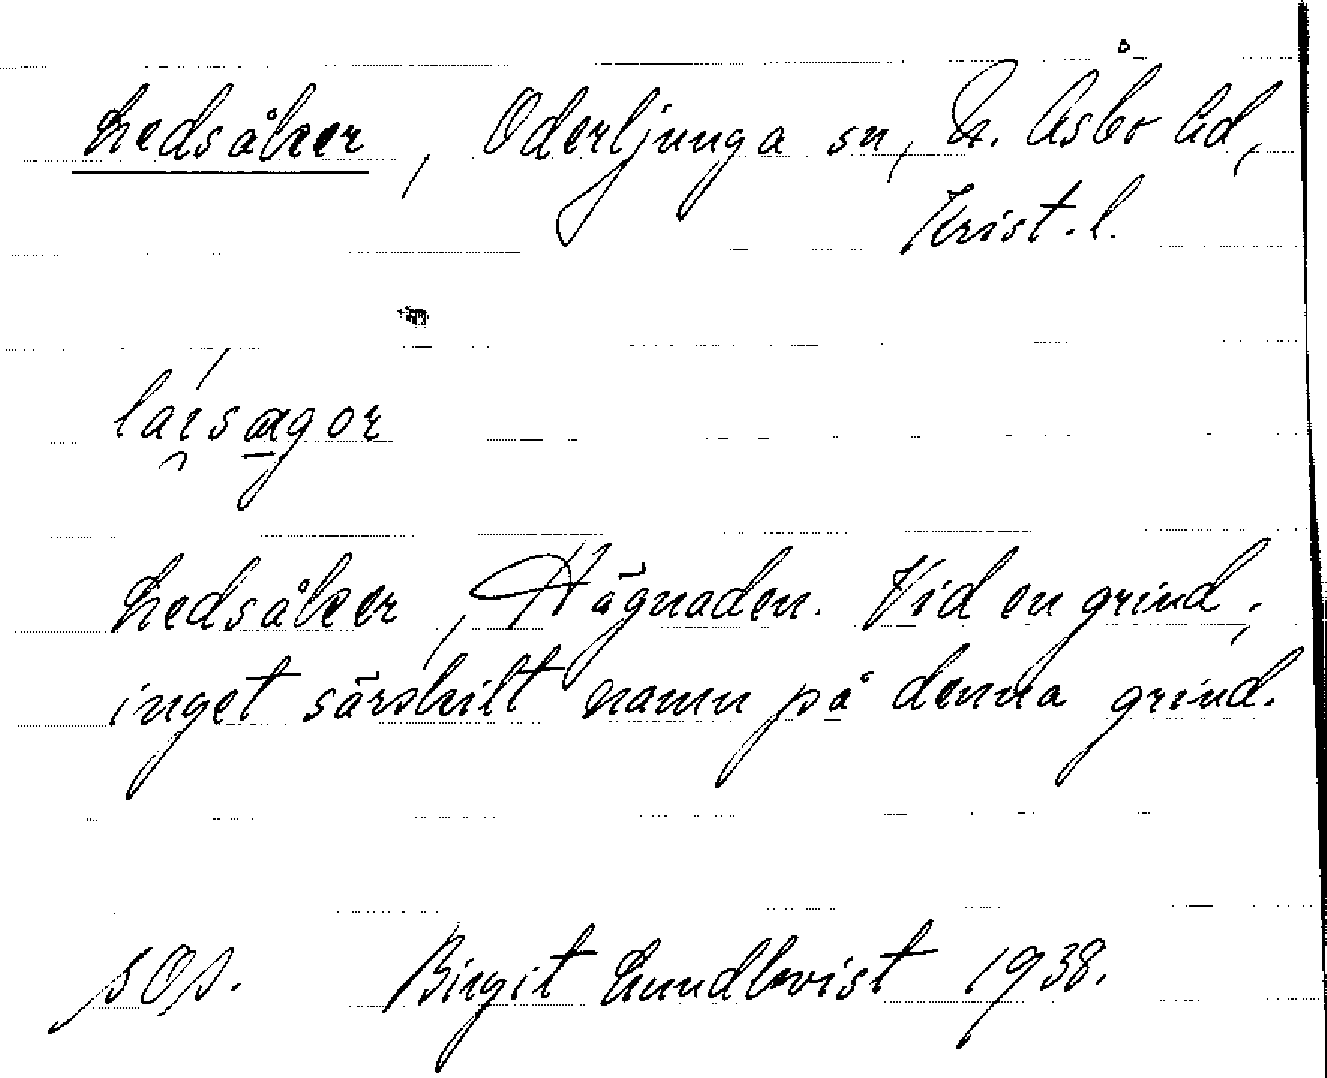 Ledsåker, Oderljunga sn, N. Åsbo hd,
Krist. l.
laisægor
Ledsåker, Hägnaden. Vid en grind,
inget särskilt namn på denna grind.
sOs. Birgit Lundkvist 1938.